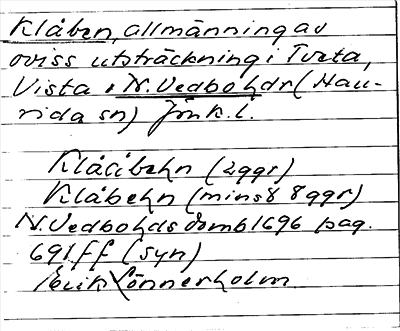 Klåben, allmänning av
oviss utsträckning i Tveta,
Vista & N. Vedbo hdr (Hau-
rida sn) Jönk. l.
Klåcibehn (2ggr)
Klåbehn (minst 8ggr)
N. Vedbo hds domb 1696 pag.
691 ff (syn)
Erik Lönnerholm